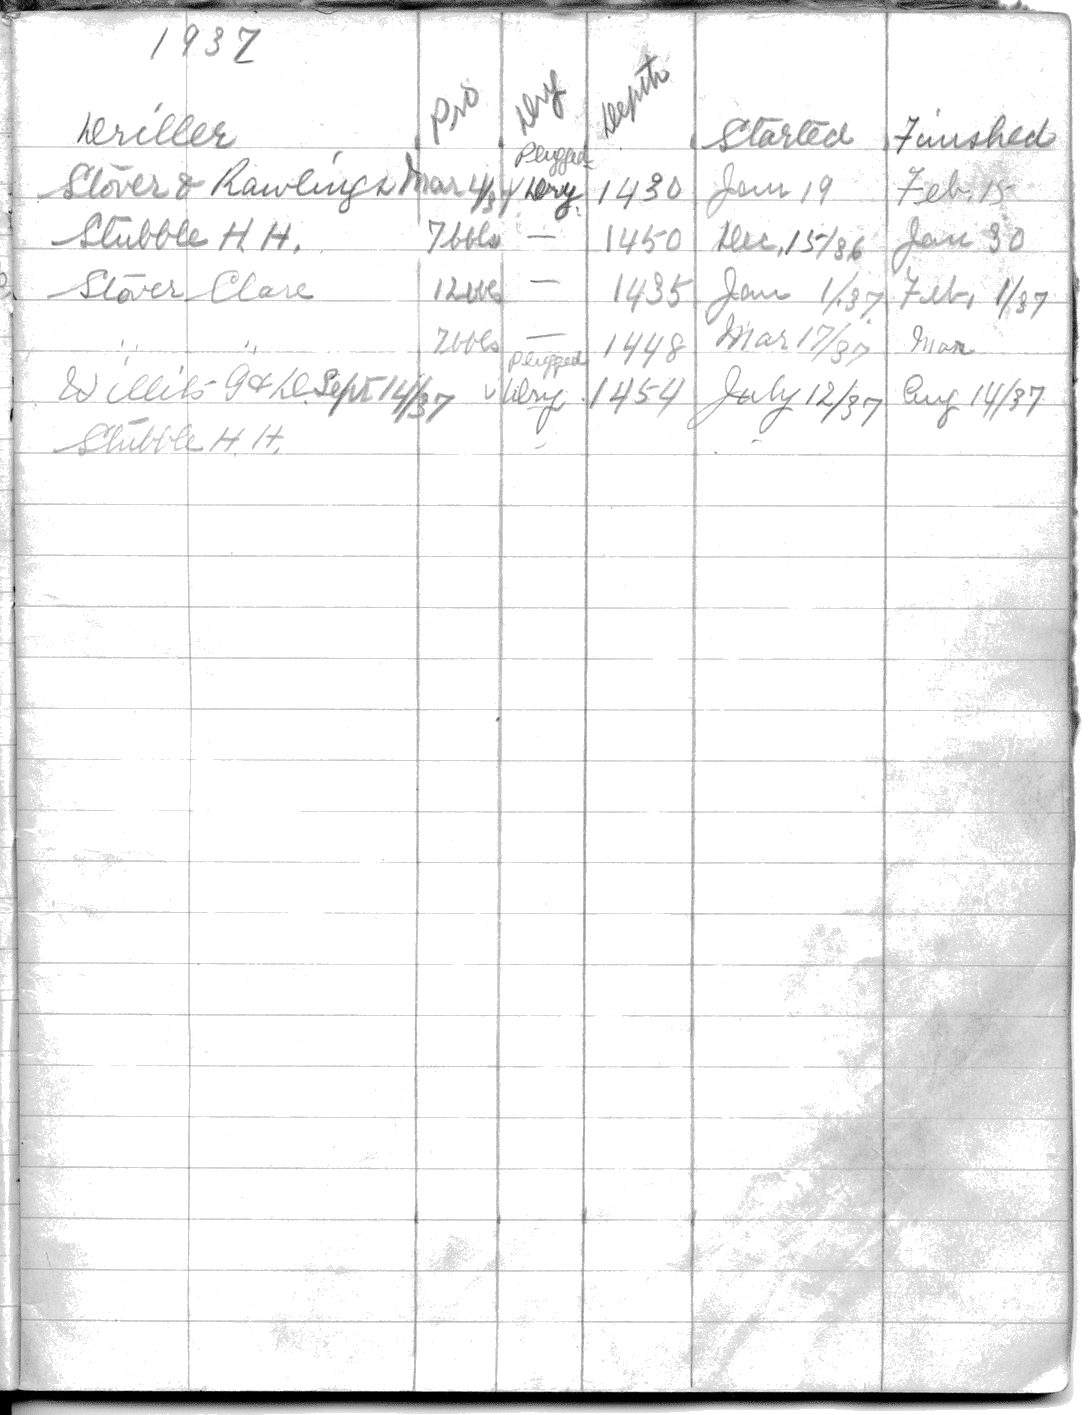 1937
Driller Pro Dry Depth Started Finished
Plugged
Stover & Rawlings Mar 4/37 Dry. 1430 Jan 19 Feb. 15
Stubble H. H. 7 bbls — 1450 Dec. 15/36 Jan 30
Stover Clare 12 bbls — 1435 Jan 1/37 Feb. 1/37
" " 7 bbls — 1448 Mar 17/37 Mar
plugged
Willits G & D. Sept 14/37 Dry 1454 July 12/37 Aug 14/37
Stubble H. H. -